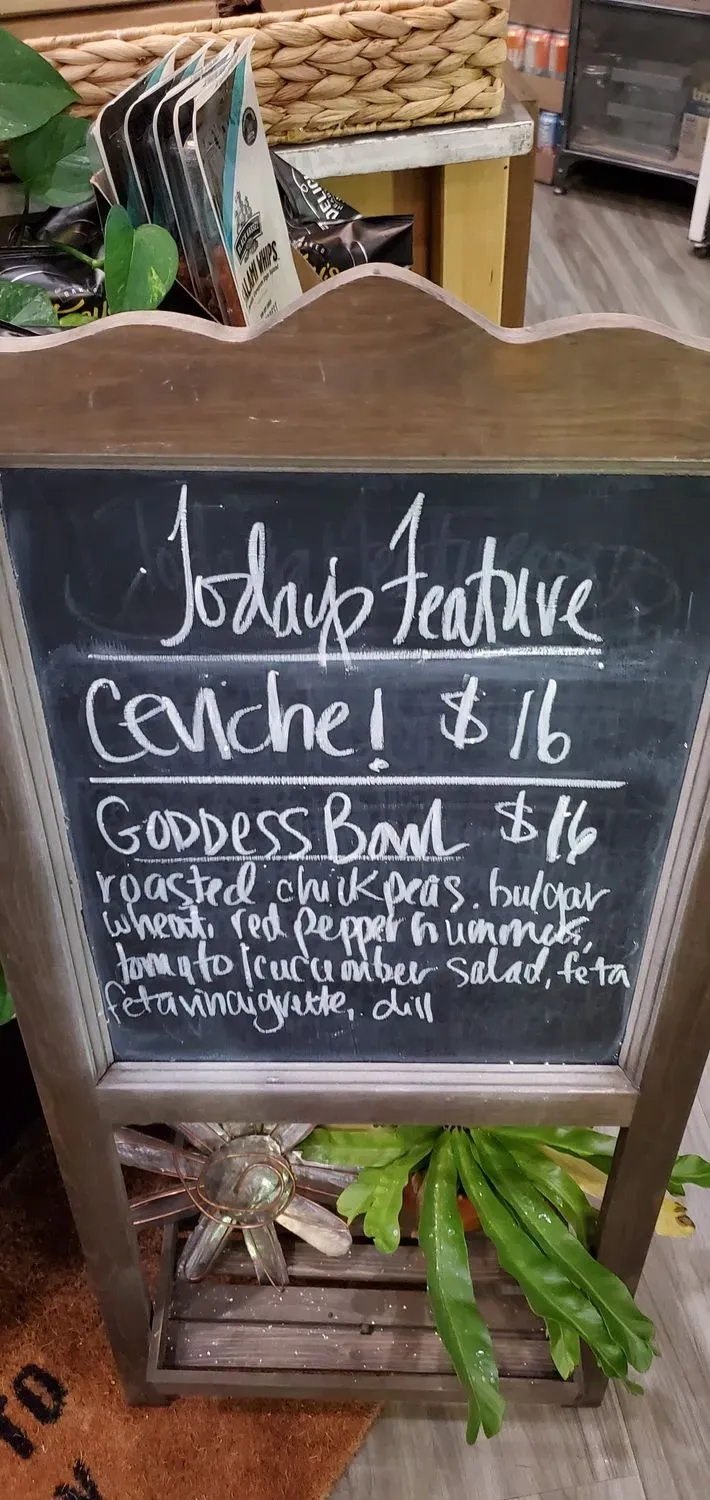 DELIC
SALAMI WHIPS
Today's Feature
Ceviche! $16
GODDESS Bowl $16
roasted chickpeas, bulgar
wheat, red pepper hummus,
tomato/cucumber salad, feta
feta vinaigrette, dill
TO